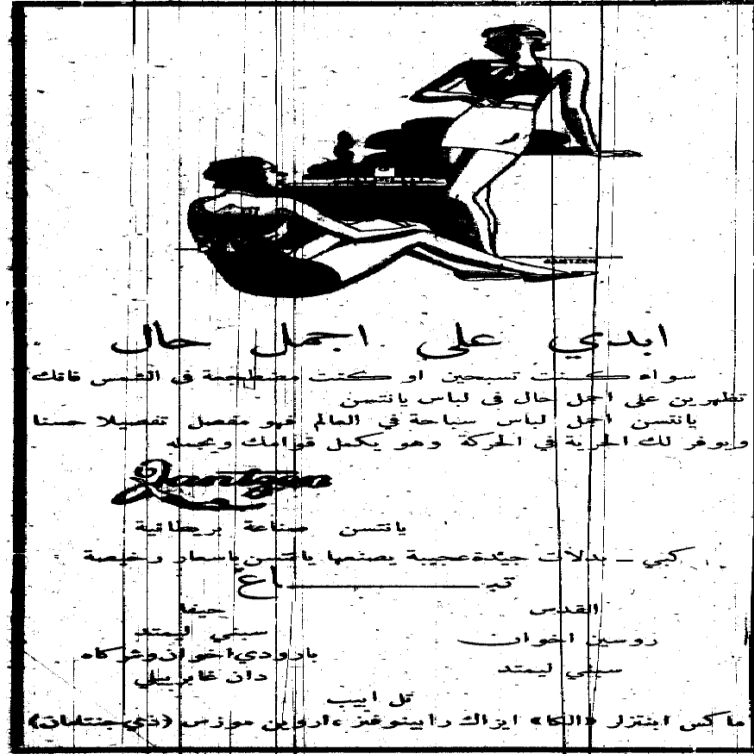 JANTZEN
ابدي على اجمل حال
سواء كنت تسبحين او كنت مضطجعة في الشمس فانك
تظهرين على اجمل حال في لباس يانتسن
يانتسن اجمل لباس سباحة في العالم فهو مفصل تفصيلا حسنا
ويوفر لك الحرية في الحركة وهو يكمل قوامك ويجمله
Jantzen
يانتسن صناعة بريطانية
كبي – بدلات جيدة عجيبة يصنعها يانتسن باسعار رخيصة
تبـــاع
القدس
روسين اخوان
سبني ليمتد
حيفا
سبني ليمتد
بارودي اخوان وشركاه
دان غابرييلي
تل ابيب
ماكس ابنتزلر «الكا» ايزاك رابينوفتز، اروين موزس (ذي جنتلمان)